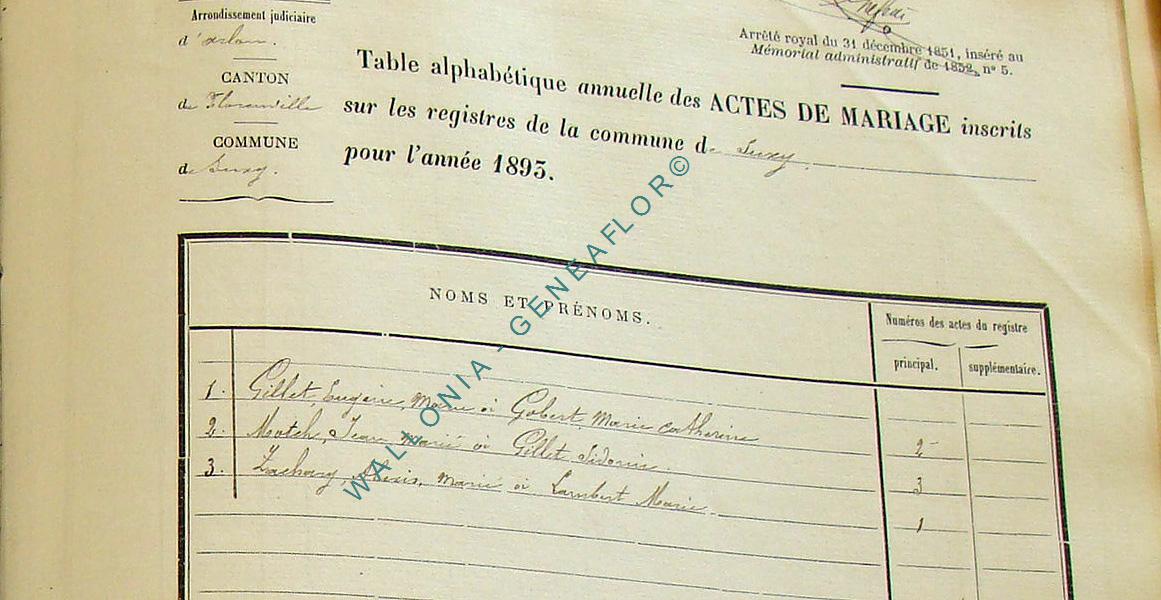 Arrondissement judiciaire
d'Arlon.
CANTON
de Florenville
COMMUNE
de Suxy.
Arrêté royal du 31 décembre 1851, inséré au
Mémorial administratif de 1852, n° 5.
Table alphabétique annuelle des ACTES DE MARIAGE inscrits
sur les registres de la commune de Suxy
pour l'année 1893.
NOMS ET PRÉNOMS.
Numéros des actes du registre
principal.
supplémentaire.
1. Gillet, Eugène, Marié à Gobert Marie Catherine 2
2. Motch, Jean marié à Gillet Sidonie. 3
3. Zachary, Alexis, marié à Lambert Marie. 1
WALLONIA - GENEAFLOR©